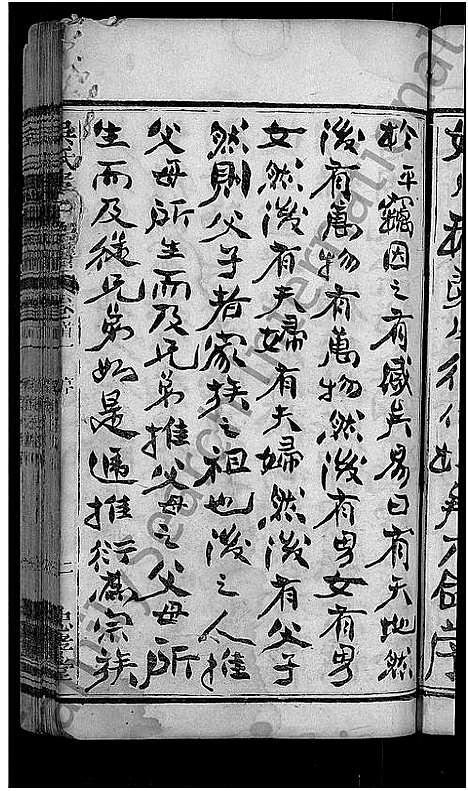 於平竊因之有感矣易曰有天地然
後有萬物有萬物然後有男女有男
女然後有夫婦有夫婦然後有父子
然則父子者家族之祖也後之人推
父母所生而及兄弟推父母之父母所
生而及從兄弟如是遞推衍為宗族
序
二
FamilySearch International